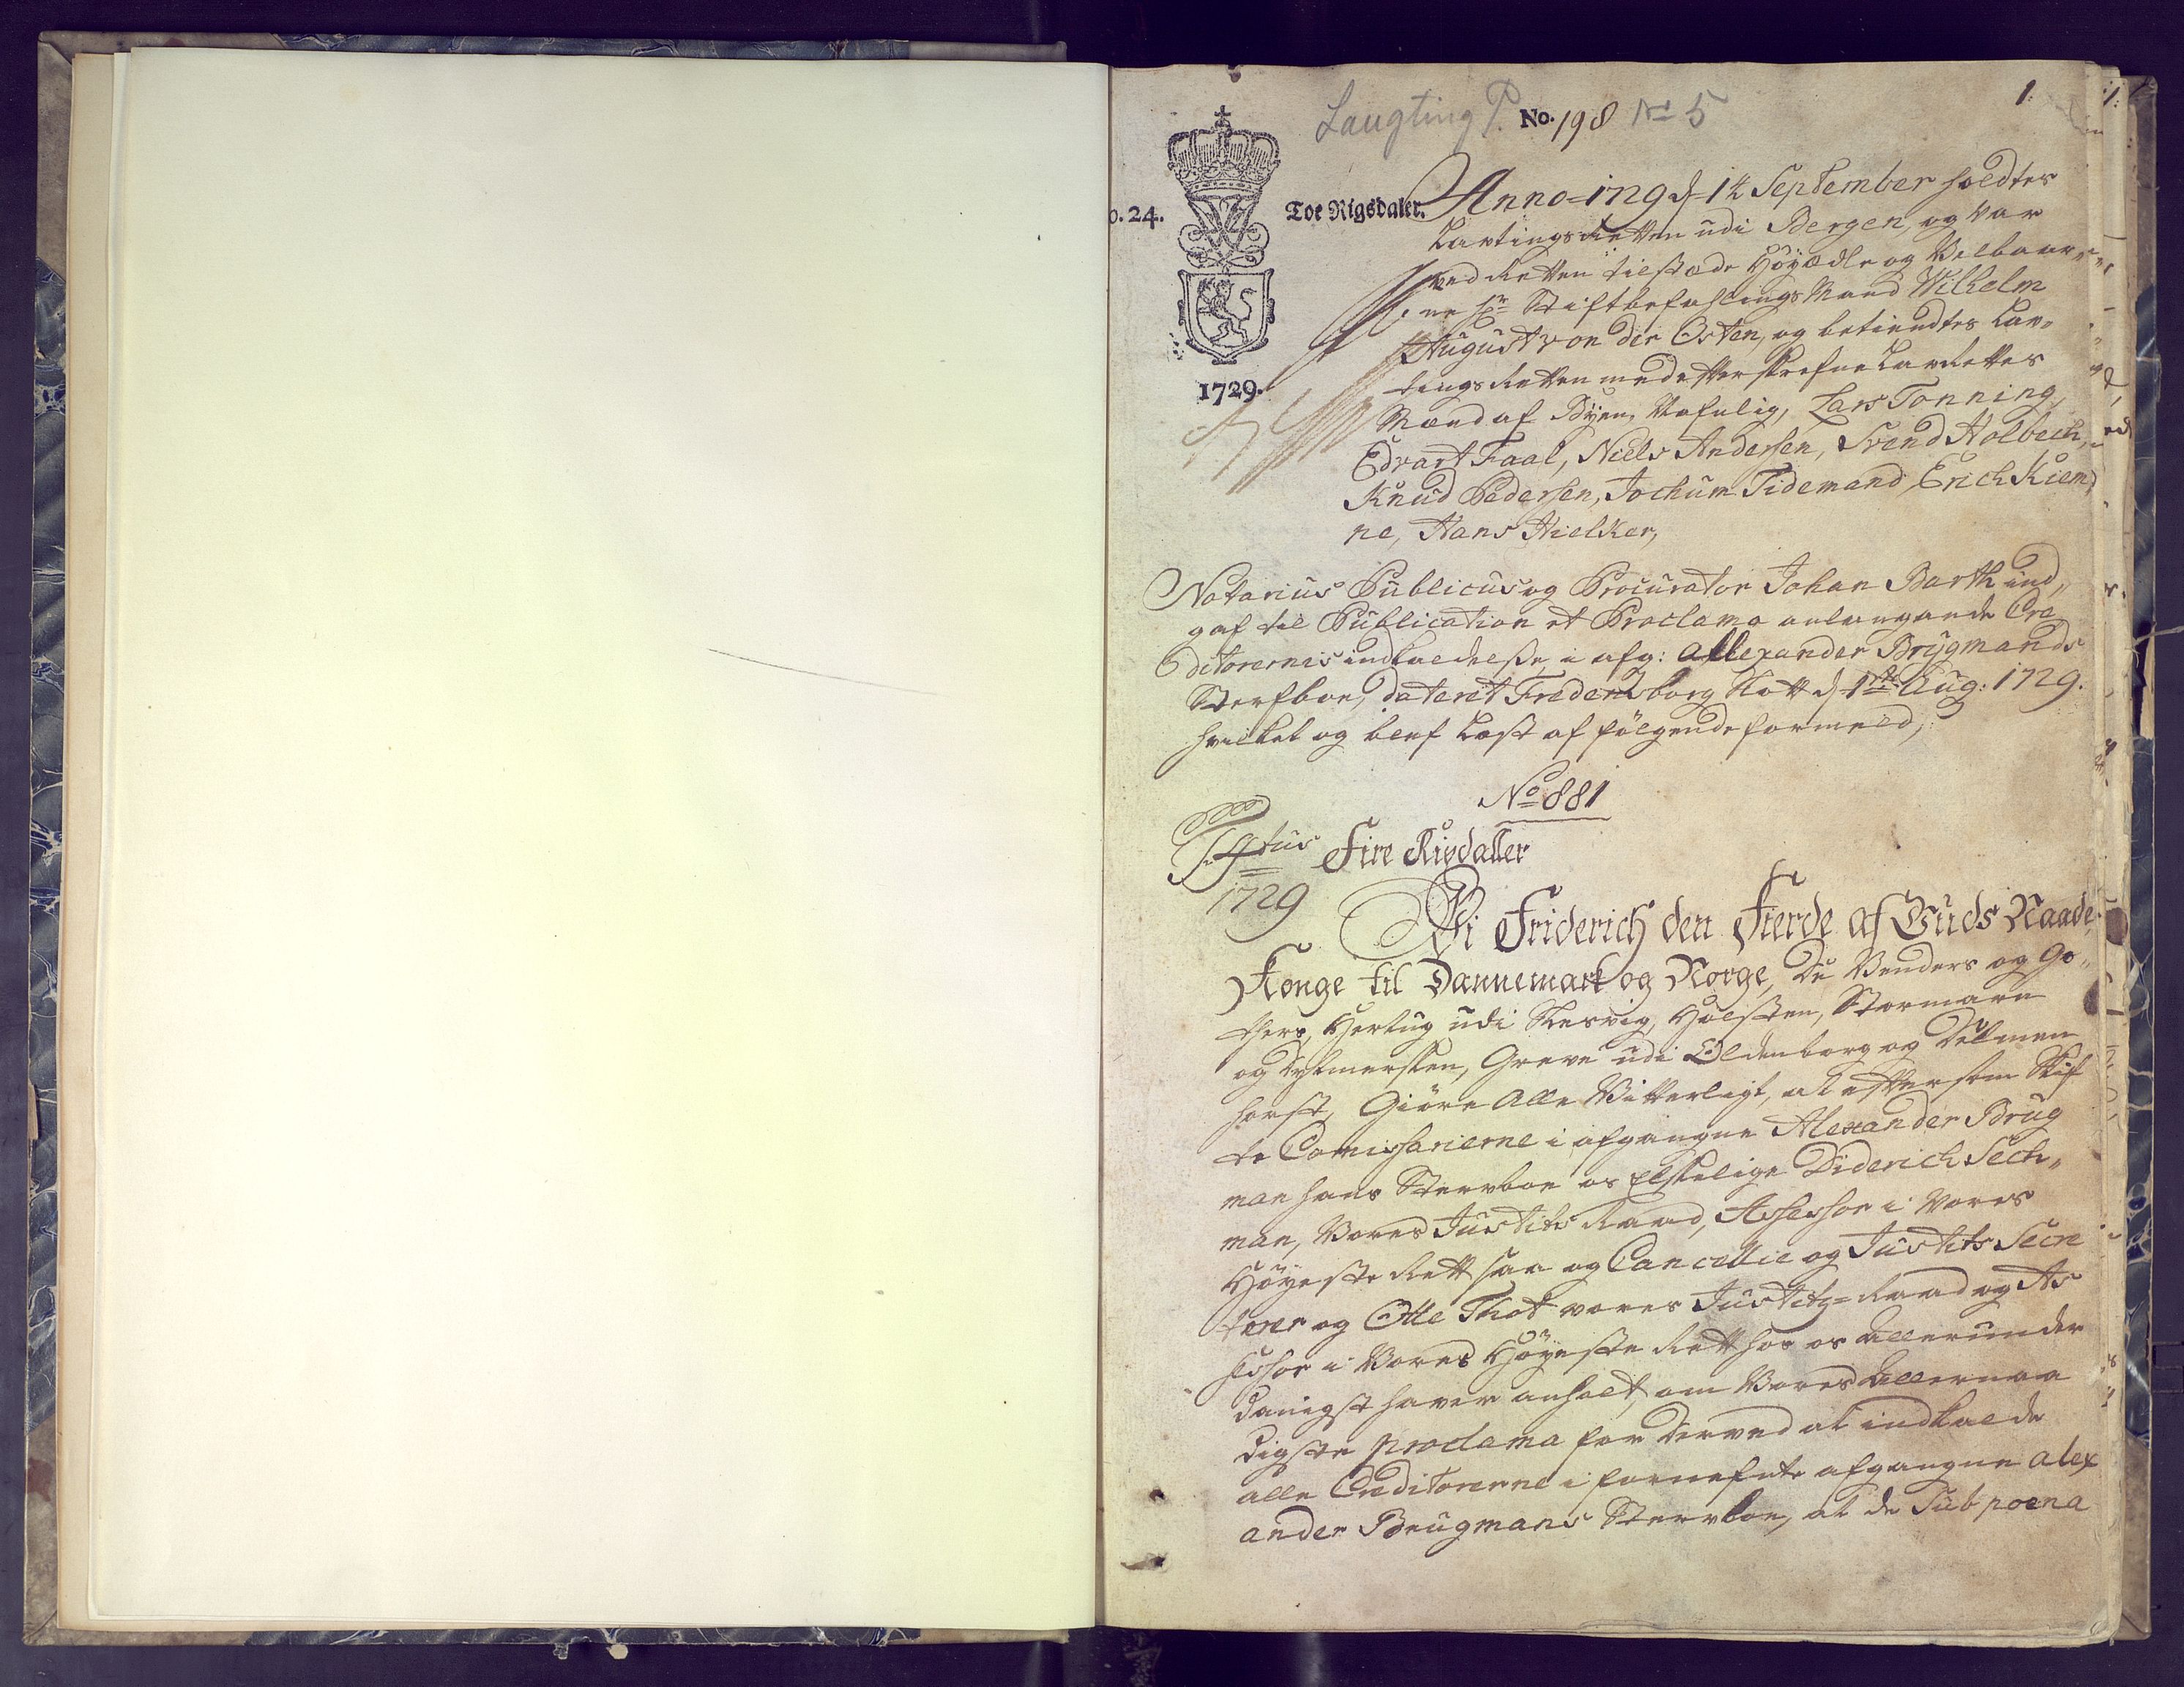 Laugting P. No. 198 No 5
1.
o. 24.
Toe Rigsdaler.
1729.
Anno 1729 d 14 September holdtes
Lavtings Retten udi Bergen, og Var
ved Retten tilstæde Höyædle og Velbaar-
ne Hr Stiftbefahlings Mand Wilhelm
August von der Osten, og betiendtes Lav-
tings Retten med efterskrefne Lavrettes
Mænd af Byen, Nafnlig, Lars Tonning,
Edvart Faal, Niels Andersen, Svend Holbech,
Knud Pedersen, Jochum Tidemand, Erich Kiem
ne, Hans Hielker,
Notarius Publicus og Procurator Johan Barth ind-
gaf til Publication et Proclama anlangande Cre
ditorernis indkaldelse i afg: Allexander Brygmands
Sterfboe, dateret Fredensborg Slott d 1ste Aug: 1729.
hvilket og blef Læst af fölgende formeld,
No 881
1729
Fire Rixdaller
Vi Friderich den Fierde af Guds Naade,
Konge til Dannemark og Norge, De Venders og Go-
thers, Hertug udi Slesvig, Holsten, Stormarn
og Dytmersken, Greve udi Oldenborg og Delmen
horst, Giöre Alle Vitterligt, at eftersom Skif
te Comissarierne i afgangne Alexander Brug
man hans Stervboe os Elskelige Diderich Sech-
man, Vores Justits Raad, Assessor i Vores
Höyeste Rett saa og Cancellie og Justits Secre
terer og Otte Thot vores Justitz-Raad og As
sessor i Vores Höyeste Rett hos os allerunder
danigst haver anholt, om Vores allernaa
digste proclama for derved at indkalde
alle Creditorerne i fornefnte afgangne alex
ander Brugmans Stervboe, at de Sub poena